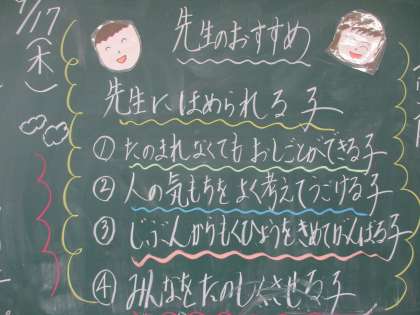 9/17(木)
先生のおすすめ
先生にほめられる子
①たのまれなくてもおしごとができる子
②人の気もちをよく考えてうごける子
③じぶんからもくひょうをきめてがんばる子
④みんなをたのしくさせる子